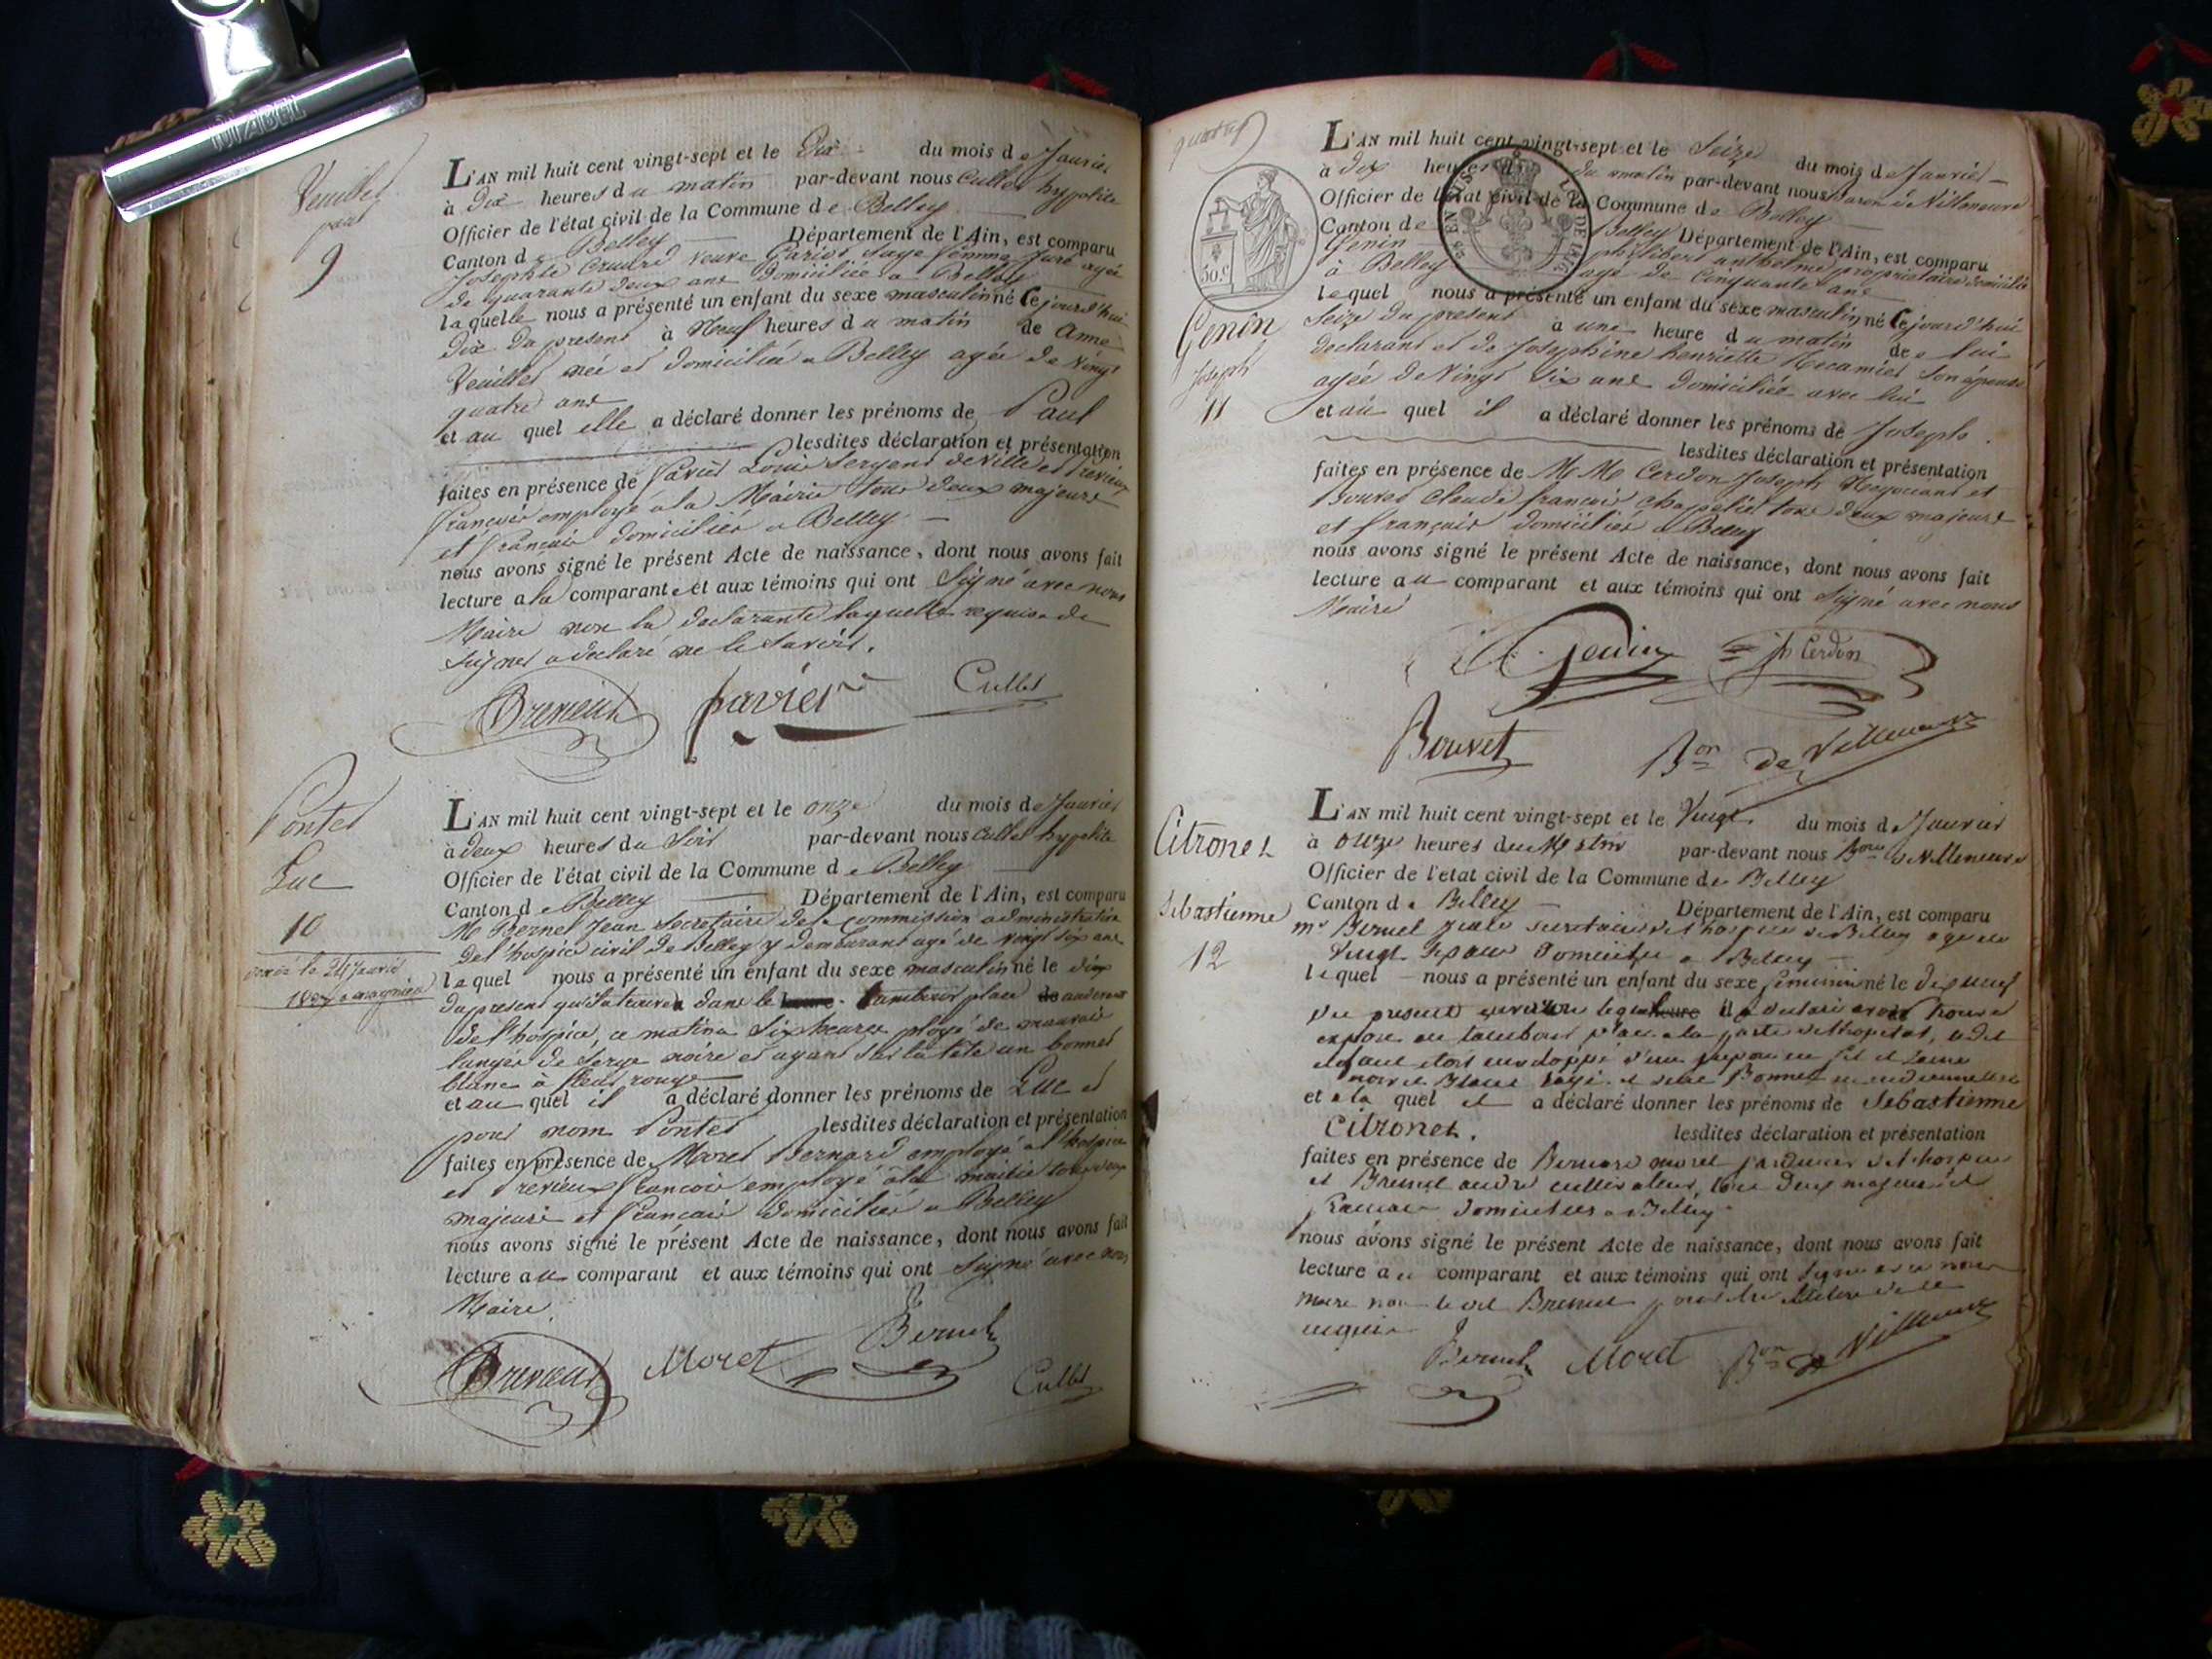 Veuillet
paul
9
L'AN mil huit cent vingt-sept et le Dix du mois de Janvier
à dix heures du matin par-devant nous Cullet hypolite
Officier de l'état civil de la Commune de Belley
Canton de Belley Département de l'Ain, est comparu
Josephte veuve sage femme juré agée
de quarante deux ans domiciliée a Belley
laquelle nous a présenté un enfant du sexe masculin né Cejourd'hui
dix du present à Neuf heures du matin de Anne
Veuillet née et domiciliée a Belley agée de Vingt
quatre ans
et au quel elle a déclaré donner les prénoms de Paul
lesdites déclaration et présentation
faites en présence de Pavier Louis Sergent de Ville et
François employé a la Mairie tous deux majeurs
et français domiciliés a Belley
nous avons signé le présent Acte de naissance, dont nous avons fait
lecture a la comparante et aux témoins qui ont Signé avec nous
Maire non la declarante laquelle requise de
Signer a declaré ne le Savoir.
pavier Cullet
Pontet
Luc
10
L'AN mil huit cent vingt-sept et le onze du mois de Janvier
à deux heures du Soir par-devant nous Cullet hypolite
Officier de l'état civil de la Commune de Belley
Canton de Belley Département de l'Ain, est comparu
M Bernel Jean Secretaire de la Commission administrative
de l'hospice civil de Belley y demeurant agé de vingt six ans
lequel nous a présenté un enfant du sexe masculin né le dix
du present qu'il a trouvé dans le tambour placé au devant
de l'hospice, ce matin a Six heures ployé de mauvais
langes de Serge noire et ayant Sur la tête un bonnet
blanc à fleurs rouge
et au quel il a déclaré donner les prénoms de Luc et
pour nom Pontet lesdites déclaration et présentation
faites en présence de Moret Bernard employé a l'hospice
et François employé à la mairie tous deux
majeurs et français domiciliés a Belley
nous avons signé le présent Acte de naissance, dont nous avons fait
lecture au comparant et aux témoins qui ont Signé avec nous
Maire.
Moret Bernel Cullet
50.c
Genin
Joseph
11
L'AN mil huit cent vingt-sept et le Seize du mois de Janvier
à dix heures du matin par-devant nous Baron de Villeneuve
Officier de l'état civil de la Commune de Belley
Canton de Belley Département de l'Ain, est comparu
Genin philibert anthelme propriétaire domicilié
à Belley agé de Cinquante ans
lequel nous a présenté un enfant du sexe masculin né Cejourd'hui
Seize du present à une heure du matin de lui
declarant et de Josephine henriette Recamier Son épouse
agée de Vingt Six ans domiciliée avec lui
et au quel il a déclaré donner les prénoms de Joseph
lesdites déclaration et présentation
faites en présence de M M Cerdon Joseph Negociant et
Bouvet Claude françois Chapelier tous deux majeurs
et français domiciliés a Belley
nous avons signé le présent Acte de naissance, dont nous avons fait
lecture au comparant et aux témoins qui ont Signé avec nous
Maire
Genin Jh Cerdon
Bouvet Bon de Villeneuve
Citronet
Sebastienne
12
L'AN mil huit cent vingt-sept et le Vingt du mois de Janvier
à onze heures du Matin par-devant nous Bon de Villeneuve
Officier de l'etat civil de la Commune de Belley
Canton de Belley Département de l'Ain, est comparu
mr Bernel Jean secretaire de l'hospice de Belley agé de
Vingt domicilié a Belley
lequel nous a présenté un enfant du sexe feminin né le dix neuf
du present il a declaré avoir trouvé
exposé au tambour placé a la porte de l'hopital, ledit
enfant etoit enveloppé d'un
noir et Blanc rayé et d'un Bonnet
et a la quel il a déclaré donner les prénoms de Sebastienne
Citronet. lesdites déclaration et présentation
faites en présence de Bernard moret jardinier de l'hospice
et andré cultivateur, tous deux majeurs et
français domiciliés a Belley
nous avons signé le présent Acte de naissance, dont nous avons fait
lecture au comparant et aux témoins qui ont signé avec nous
maire non le dit de ce
requis
Bernel Moret Bon de Villeneuve